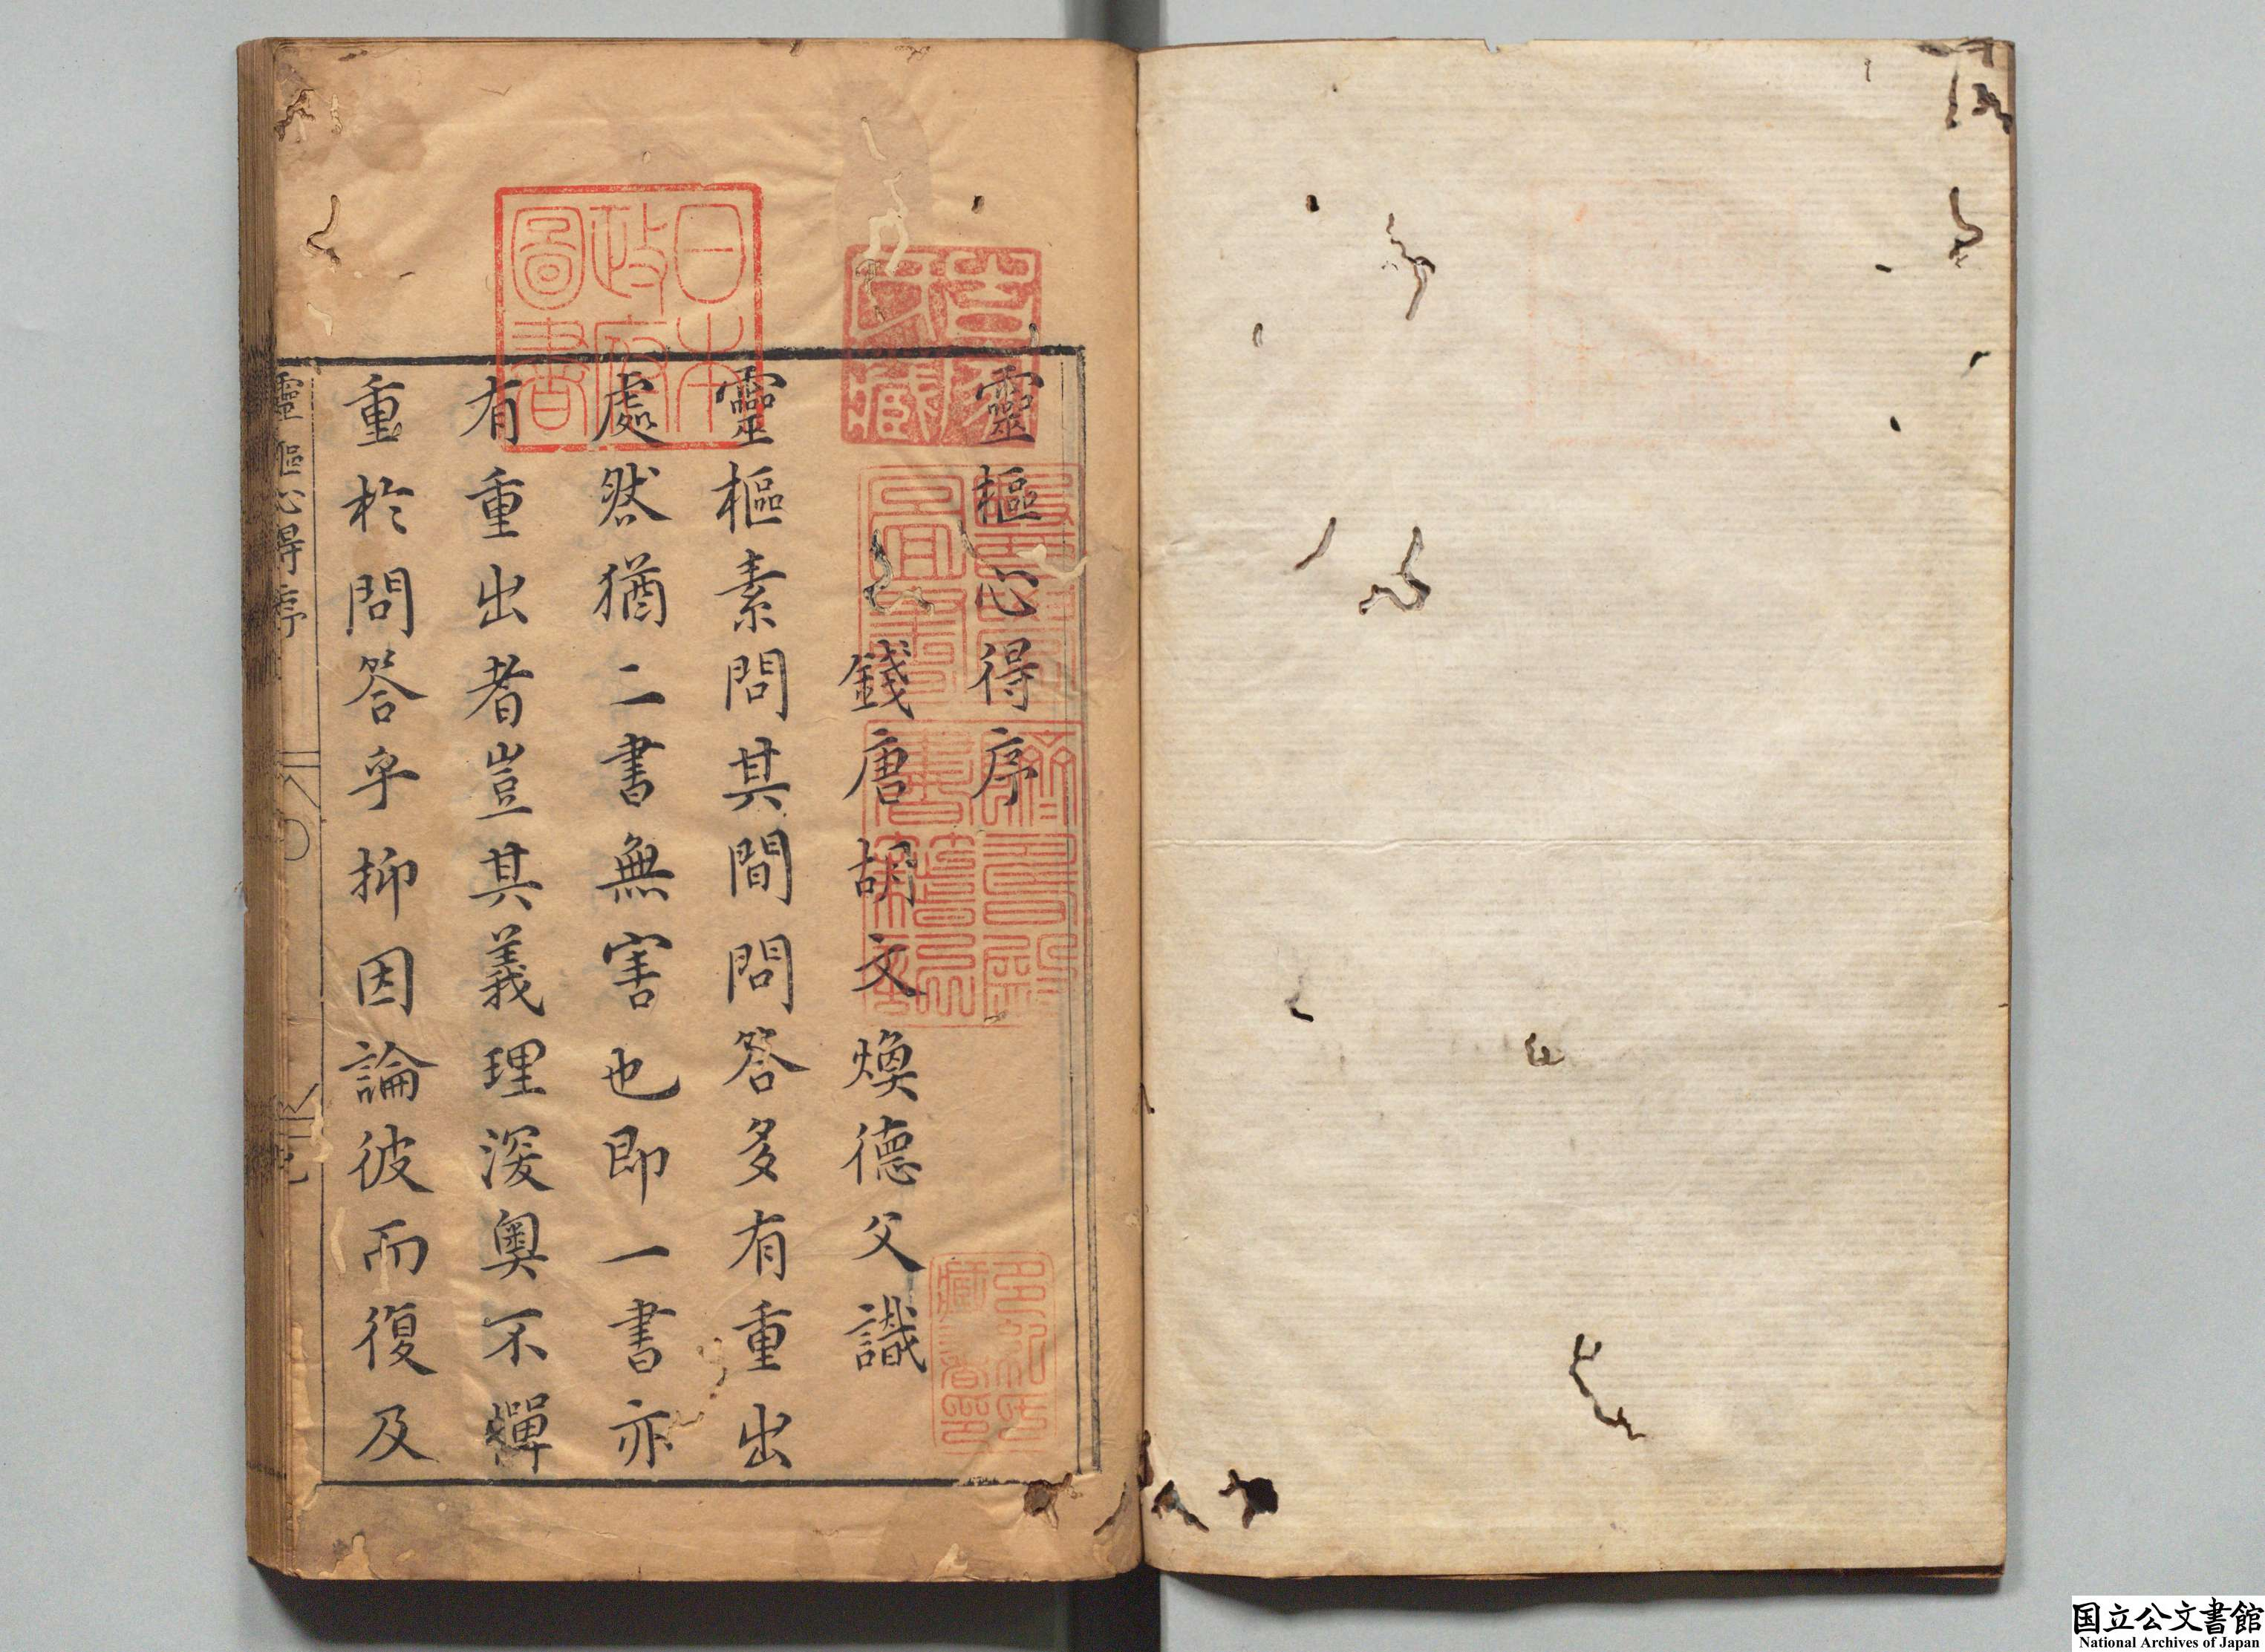 靈樞心得序
錢唐胡文煥德父識
靈樞素問其間問答多有重出
處然猶二書無害也即一書亦
有重出者豈其義理深奧不憚
重於問答乎抑因論彼而復及
靈樞心得序
日本
政府
圖書
多紀氏
藏書印
国立公文書館
National Archives of Japan